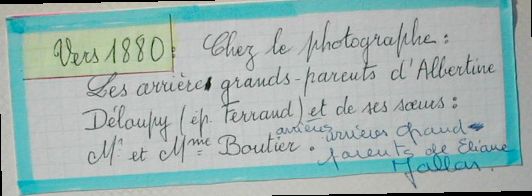 Vers 1880 : Chez le photographe :
Les arrière grands-parents d'Albertine
Déloupy (ép. Ferrand) et de ses sœurs :
Mr et Mme Boutier. arrières arrières grand
parents de Eliane